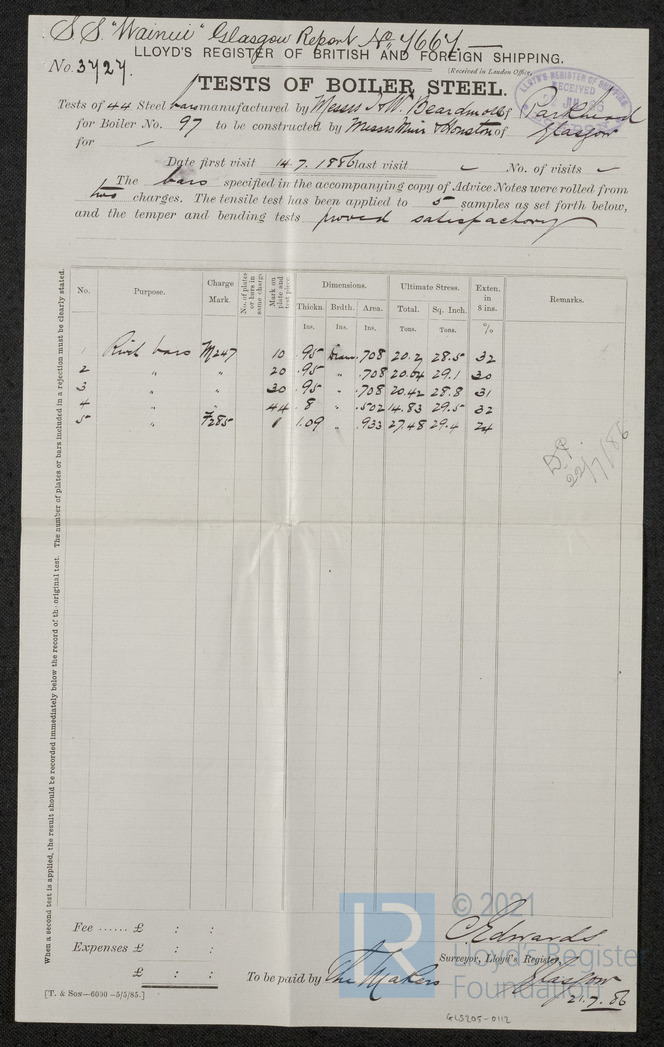 S.S. "Wainui" Glasgow Report No 7667.
LLOYD'S REGISTER OF BRITISH AND FOREIGN SHIPPING.
No. 3727.
(Received in London Office,
LLOYD'S REGISTER OF SHIPPING
RECEIVED
TESTS OF BOILER STEEL.
Tests of 44 Steel bars manufactured by Messrs W. Beardmore of Parkhead
for Boiler No. 97 to be constructed by Messrs Muir & Houston of Glasgow
for —
Date first visit 14.7.1886 last visit No. of visits
The bars specified in the accompanying copy of Advice Notes were rolled from
two charges. The tensile test has been applied to 5 samples as set forth below,
and the temper and bending tests proved satisfactory
No. Purpose. Charge Mark. No. of plates or bars in same charge. Mark on plate and test piece. Dimensions. Ultimate Stress. Exten. in 8 ins. Remarks.
Thickn. Brdth. Area. Total. Sq. Inch.
Ins. Ins. Ins. Tons. Tons. %
1 Rivet bars M247 10 .95 Diam. .708 20.2 28.5 32
2 " " 20 .95 " .708 20.64 29.1 30
3 " " 30 .95 " .708 20.42 28.8 31
4 " " 44 .8 " .502 14.83 29.5 32
5 " F285 1 1.09 " .933 27.48 29.4 24
22/7/86
When a second test is applied, the result should be recorded immediately below the record of the original test. The number of plates or bars included in a rejection must be clearly stated.
Fee ...... £ : :
Expenses £ : :
£ : :
To be paid by The Makers
C. Edwards
Surveyor, Lloyd's Register,
Glasgow
21.7.86
[T. & Son—6000—5/5/85.]
LR
© 2021
Lloyd's Register
Foundation
GLS205-0112